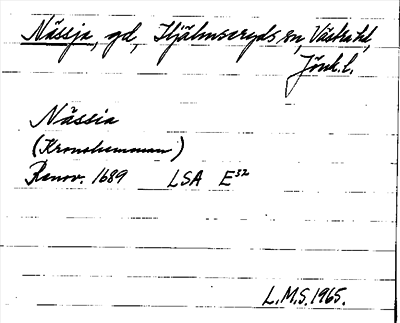 Nässja, gd, Hjälmseryds sn, Västra hd,
Jönk. l.
Nässia
(Kronohemman)
Renov. 1689 LSA E32
L.M.S. 1965.